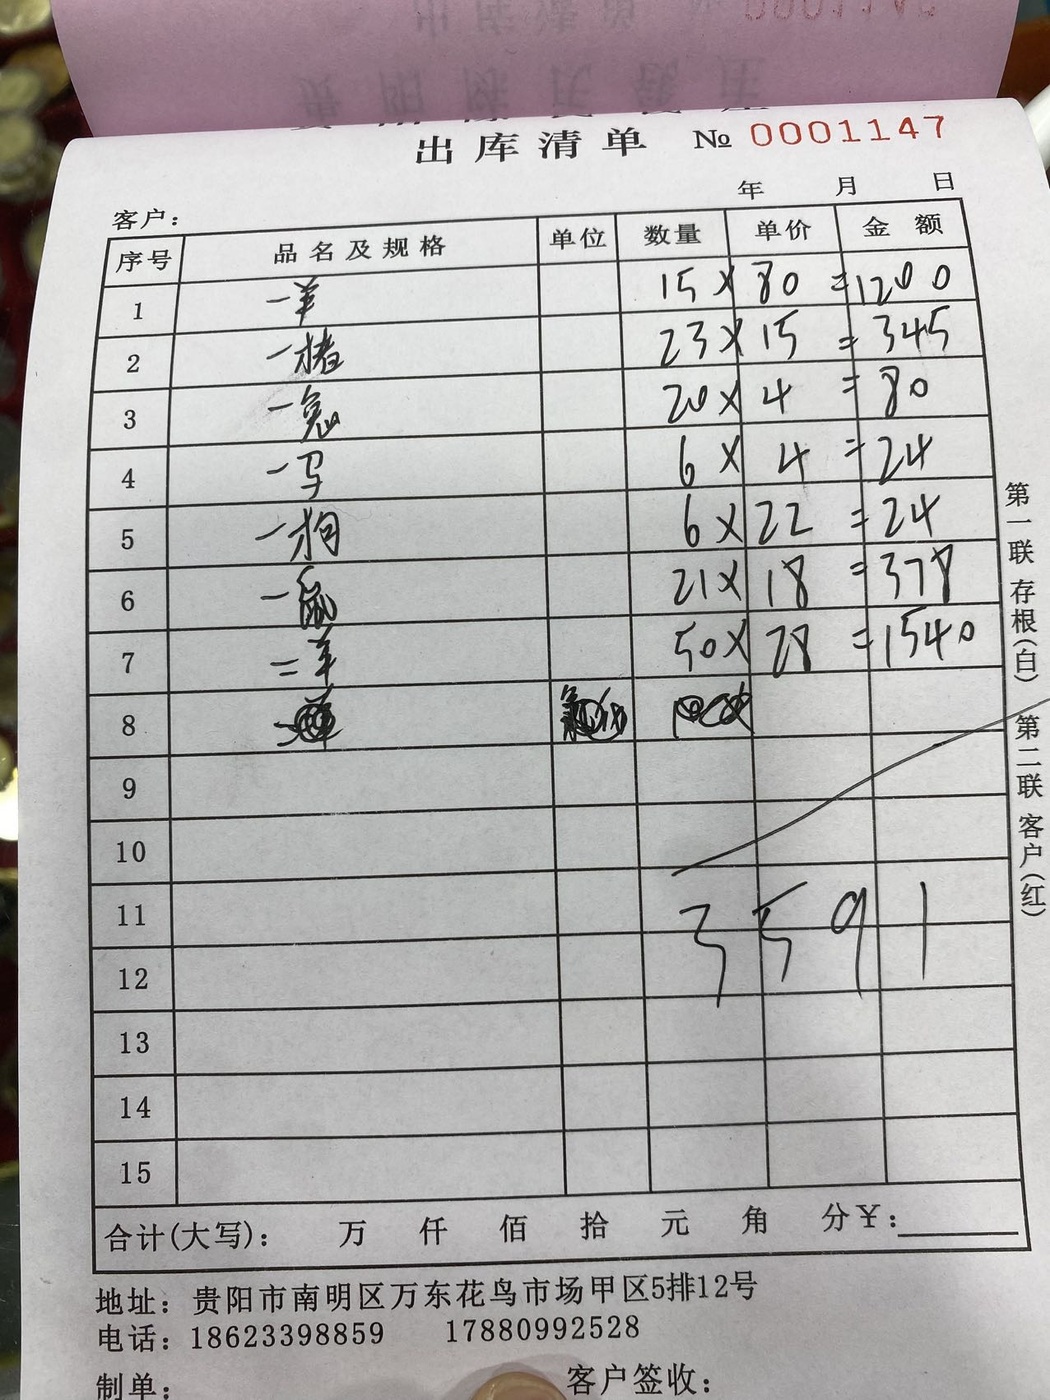 出库清单 № 0001147
年 月 日
客户：
序号 品名及规格 单位 数量 单价 金额
1 一羊 15 × 80 = 1200
2 一猪 23 × 15 = 345
3 一兔 20 × 4 = 80
4 一马 6 × 4 = 24
5 一狗 6 × 22 = 24
6 一鼠 21 × 18 = 378
7 二羊 50 × 28 = 1540
8
9
10
11
3591
12
13
14
15
合计(大写)： 万 仟 佰 拾 元 角 分￥：
第一联 存根(白) 第二联 客户(红)
地址：贵阳市南明区万东花鸟市场甲区5排12号
电话：18623398859 17880992528
制单： 客户签收：